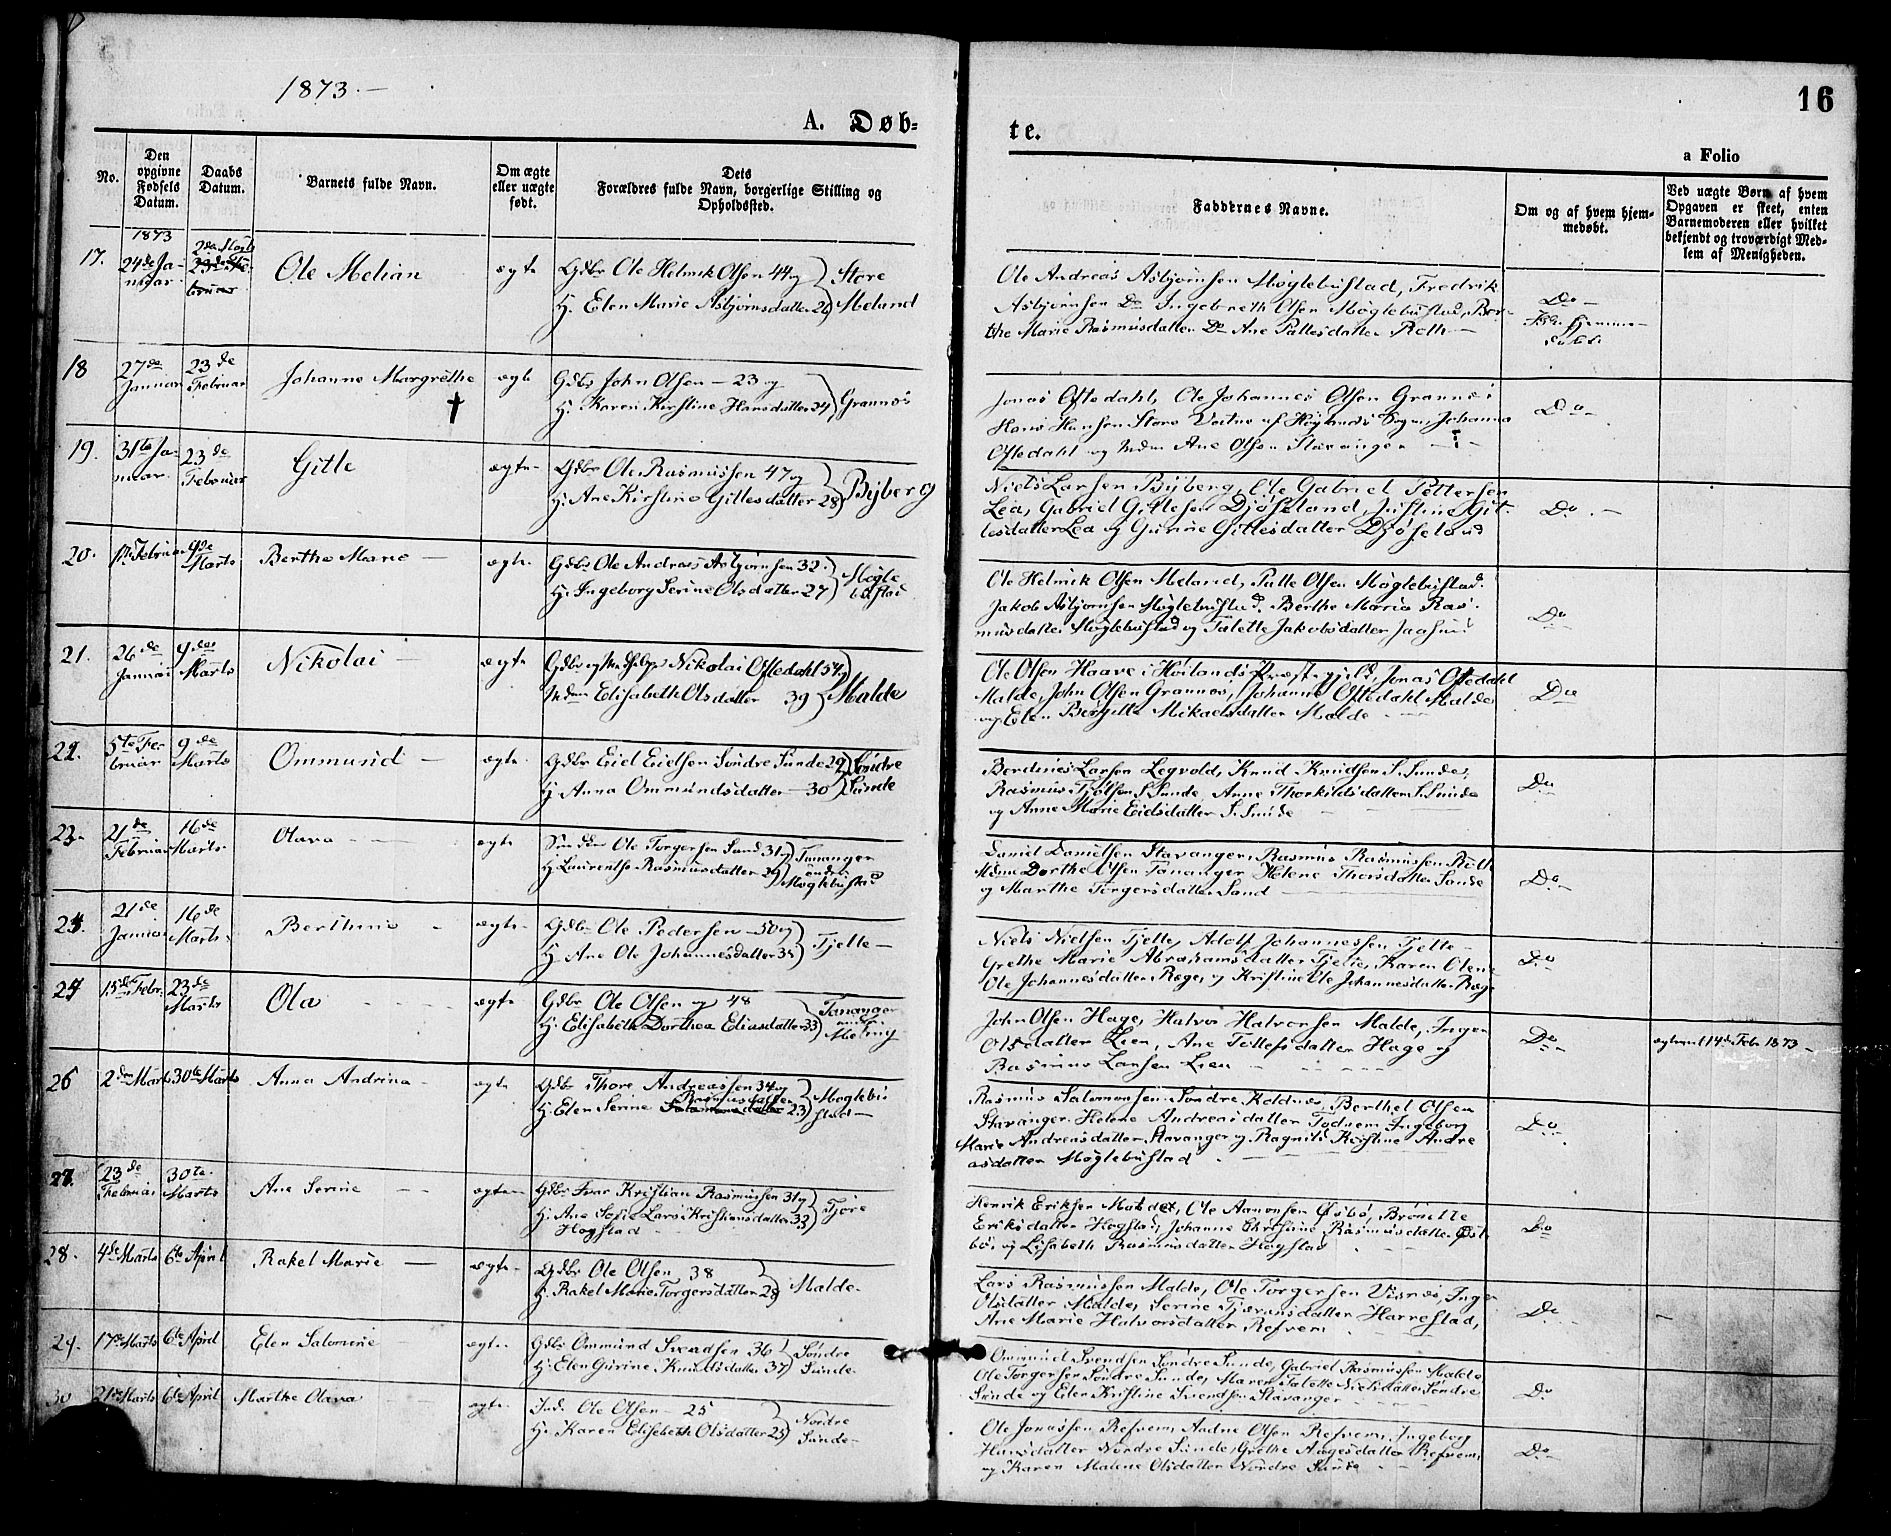 1873.—
16
A. Døb-
te.
a Folio
No.
Den opgivne Fødsels Datum.
Daabs Datum.
Barnets fulde Navn.
Om ægte eller uægte født.
Dets Forældres fulde Navn, borgerlige Stilling og Opholdssted.
Faddernes Navne.
Om og af hvem hjem-
medøbt.
Ved uægte Børn af hvem
Opgaven er skeet, enten
Barnemoderen eller hvilket
bekjendt og troværdigt Med-
lem af Menigheden.
1873
17. 24de Ja-
nuar 2den Marts Ole Melian ægte Gdbr Ole Helmik Olsen 44 og Store
H. Elen Marie Asbjørnsdatter 26 Meland
Ole Andreas Asbjørnsen Møglebustad, Fredrik
Asbjørnsen Do Ingebreth Olsen Møglebustad, Ber-
the Marie Rasmusdatter Do Ane Pallesdatter Roth —
Do —
18 27de Januar 23de Februar Johanne Margrethe † ægte Gdbr John Olsen — 23 og
H. Karen Kirstine Hansdatter 24 Grannøs
Jonas Oftedahl, Ole Johannes Olsen Grannøs i
Hans Hansen Store of Høylands Sogn, Johanna
Oftedahl og Mdm Ane Olsen Stavanger
Do —
19. 31te Ja-
nuar 23de Februar Gitle ægte Gdbr Ole Rasmussen 47 og
H. Ane Kirstine Gitlesdatter 28 Byberg
Niels Larsen Byberg, Ole Gabriel Pettersen
Lea, Gabriel Gitlesen Djøseland, Justine Git-
lesdatter Lea og Gurine Gitlesdatter Djøseland
Do. —
20. 1ste Februar 9de Marts Berthe Marie — ægte Gdbr Ole Andreas Asbjørnsen 32 Møgle
H. Ingeborg Serine Olsdatter 27 bustad
Ole Helmik Olsen Meland, Palle Olsen Møglebustad.
Jakob Asbjørnsen Møglebustad. Berthe Maria Ras-
musdatter Møglebustad og Talette Jakobsdatter Jaasund
Do —
21. 26de Januar 9de Marts Nikolai — ægte Gdbr og Nikolai Oftedahl 54
Mdm Elisabeth Olsdatter 39 Malde
Ole Olsen Haave i Høilands Præstegjeld, Jonas Oftedahl
Malde, John Olsen Grannøs, Johanne Oftedahl Malde
og Elen Bergitte Mikaelsdatter Malde
Do —
22. 5te Fe-
bruar 9de Marts Ommund — ægte Gdbr Eiel Eielsen Søndre Sunde 29 Søndre
H. Anna Ommundsdatter — 30 Sunde
Berdines Larsen Legvold, Knud Knudsen S. Sunde,
Rasmus S. Sunde Anne Thorkildsdatter S. Sunde
og Anne Marie Eidsdatter S. Sunde
Do —
23. 21de Februar 16de Marts Olava ægte Ole Torgersen Sand 31 og Tananger
H. Laurentse Rasmusdatter 29 under
Møglebustad
Daniel Danielsen Stavanger, Rasmus Rasmussen Roth
Mdm Dorthe Olsen Tananger Helene Thorsdatter Sande
og Marthe Torgersdatter Sand
Do. —
24. 21de Januar 16de Marts Berthine ægte Gdbr Ole Pedersen — 50 og
H. Ane Ole Johannesdatter 34 Tjelte —
Niels Nielsen Tjelte, Adolf Johannessen Tjelte —
Grethe Marie Abrahamsdatter Tjelte, Karen Olene
Ole Johannesdatter Ræge, og Kristine Ole Johannesdatter Ræge
Do. —
25 15de Febr. 23de Marts Ola ægte Gdbr Ole Olsen og 48 Tananger
H. Elisabeth Dorthea Eliasdatter 33 under
Meling
John Olsen Hage, Halvor Halvorsen Malde, Inger
Olsdatter Lien, Ane Tollefsdatter Hage og
Rasmus Larsen Lien
Do —
14de Febr 1873 —
26 2den Marts 30te Marts Anna Andrina — ægte Gdbr Thore Andreassen 34 og Møglebu
Rasmusdatter
H. Elen Serine Salomonsdatter 23 stad —
Rasmus Salomonsen Søndre Koldnes, Berthel Olsen
Stavanger Helene Andreasdatter Todnem, Ingeborg
Marie Andreasdatter Stavanger og Ragnild Kristine Andre
asdatter Møglebustad
Do —
27. 23de Februar 30te Marts Ane Serine — ægte Gdbr Ivar Kristian Rasmussen 31 og
H. Ane Sofie Lars Kristiansdatter 33 Tjøre
Hogstad
Henrik Eriksen Ole Aamonsen Østbø, Brønette
Eriksdatter Hogstad, Johanne Christine Rasmusdatter Øst-
bø, og Lisabeth Rasmusdatter Hogstad
Do
28. 4de Marts 6te April Rakel Marie — ægte Gdbr Ole Olsen 38
H. Rakel Marie Torgersdatter 29 Malde.
Lars Rasmussen Malde, Ole Torgersen Visnes, Inger
Olsdatter Malde, Serine Tjæransdatter Harrestad,
Ane Marie Halvorsdatter Refvem
Do —
29. 17de Marts 6te April Elen Salomine ægte Gdbr Ommund Svendsen 36 Søndre
H. Elen Gurine Knudsdatter 37 Sunde.
Ommund Svendsen Søndre Sunde, Gabriel Rasmussen Malde
Ole Torgersen Søndre Sunde, Maren Talette Nielsdatter Søndre
Sunde og Elen Kristine Svendsen Stavanger
Do
30 21de Marts 6te April Marthe Olava ægte Ind. Ole Olsen — 25 Nordre
H. Karen Elisebeth Olsdatter 25 Sunde
Ole Jonassen Refvem, Aadne Olsen Refvem, Ingeborg
Hansdatter Nordre Sunde, Grethe Aagesdatter Refvem,
og Karen Malene Olsdatter Nordre Sunde
Do —